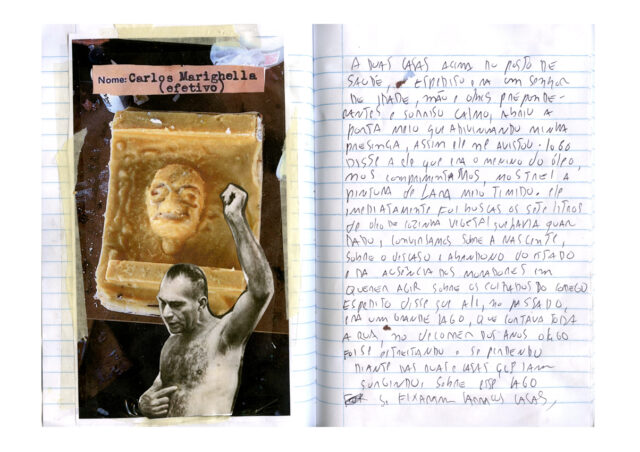 Nome: Carlos Marighella
(efetivo)
A DUAS CASAS ACIMA NO POSTO DE
SAÚDE, ESPEDITO, ERA UM SENHOR
DE IDADE, MÃO E OLHOS PREPONDE-
RANTES E SORRISO CALMO, ABRIU A
PORTA MEIO QUE ADIVINHANDO MINHA
PRESENÇA, ASSIM ELE ME AVISTOU. LOGO
DISSE A ELE QUE ERA O MENINO DO ÓLEO,
NOS COMPRIMENTAMOS, MOSTREI A
PINTURA DE MEIO TIMIDO. ELE
IMEDIATAMENTE FOI BUSCAR OS SETE LITROS
DE OLEO DE COZINHA VEGETAL QUE HAVIA GUAR
DADO, CONVERSAMOS SOBRE A NASCENTE,
SOBRE O DESCASO E ABANDONO DO ESTADO
E DA AUSÊNCIA DOS MORADORES EM
QUERER AGIR SOBRE OS CUIDADOS DO CORREGO
ESPEDITO DISSE QUE ALI, NO PASSADO,
ERA UM GRANDE LAGO, QUE CORTAVA TODA
A RUA, NO DECORRER DOS ANOS O LAGO
FOI SE ESTREITANDO E SE PERDENDO
DIANTE DAS RUAS E CASAS QUE IAM
SURGINDO, SOBRE ESSE LAGO
SE FIXARAM CASAS,